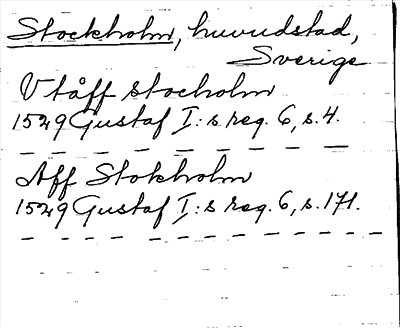 Stockholm, huvudstad,
Sverige
Utåff stocholm
1529 Gustaf I:s reg. 6, s. 4.
Aff Stokholm
1529 Gustaf I:s reg. 6, s. 171.